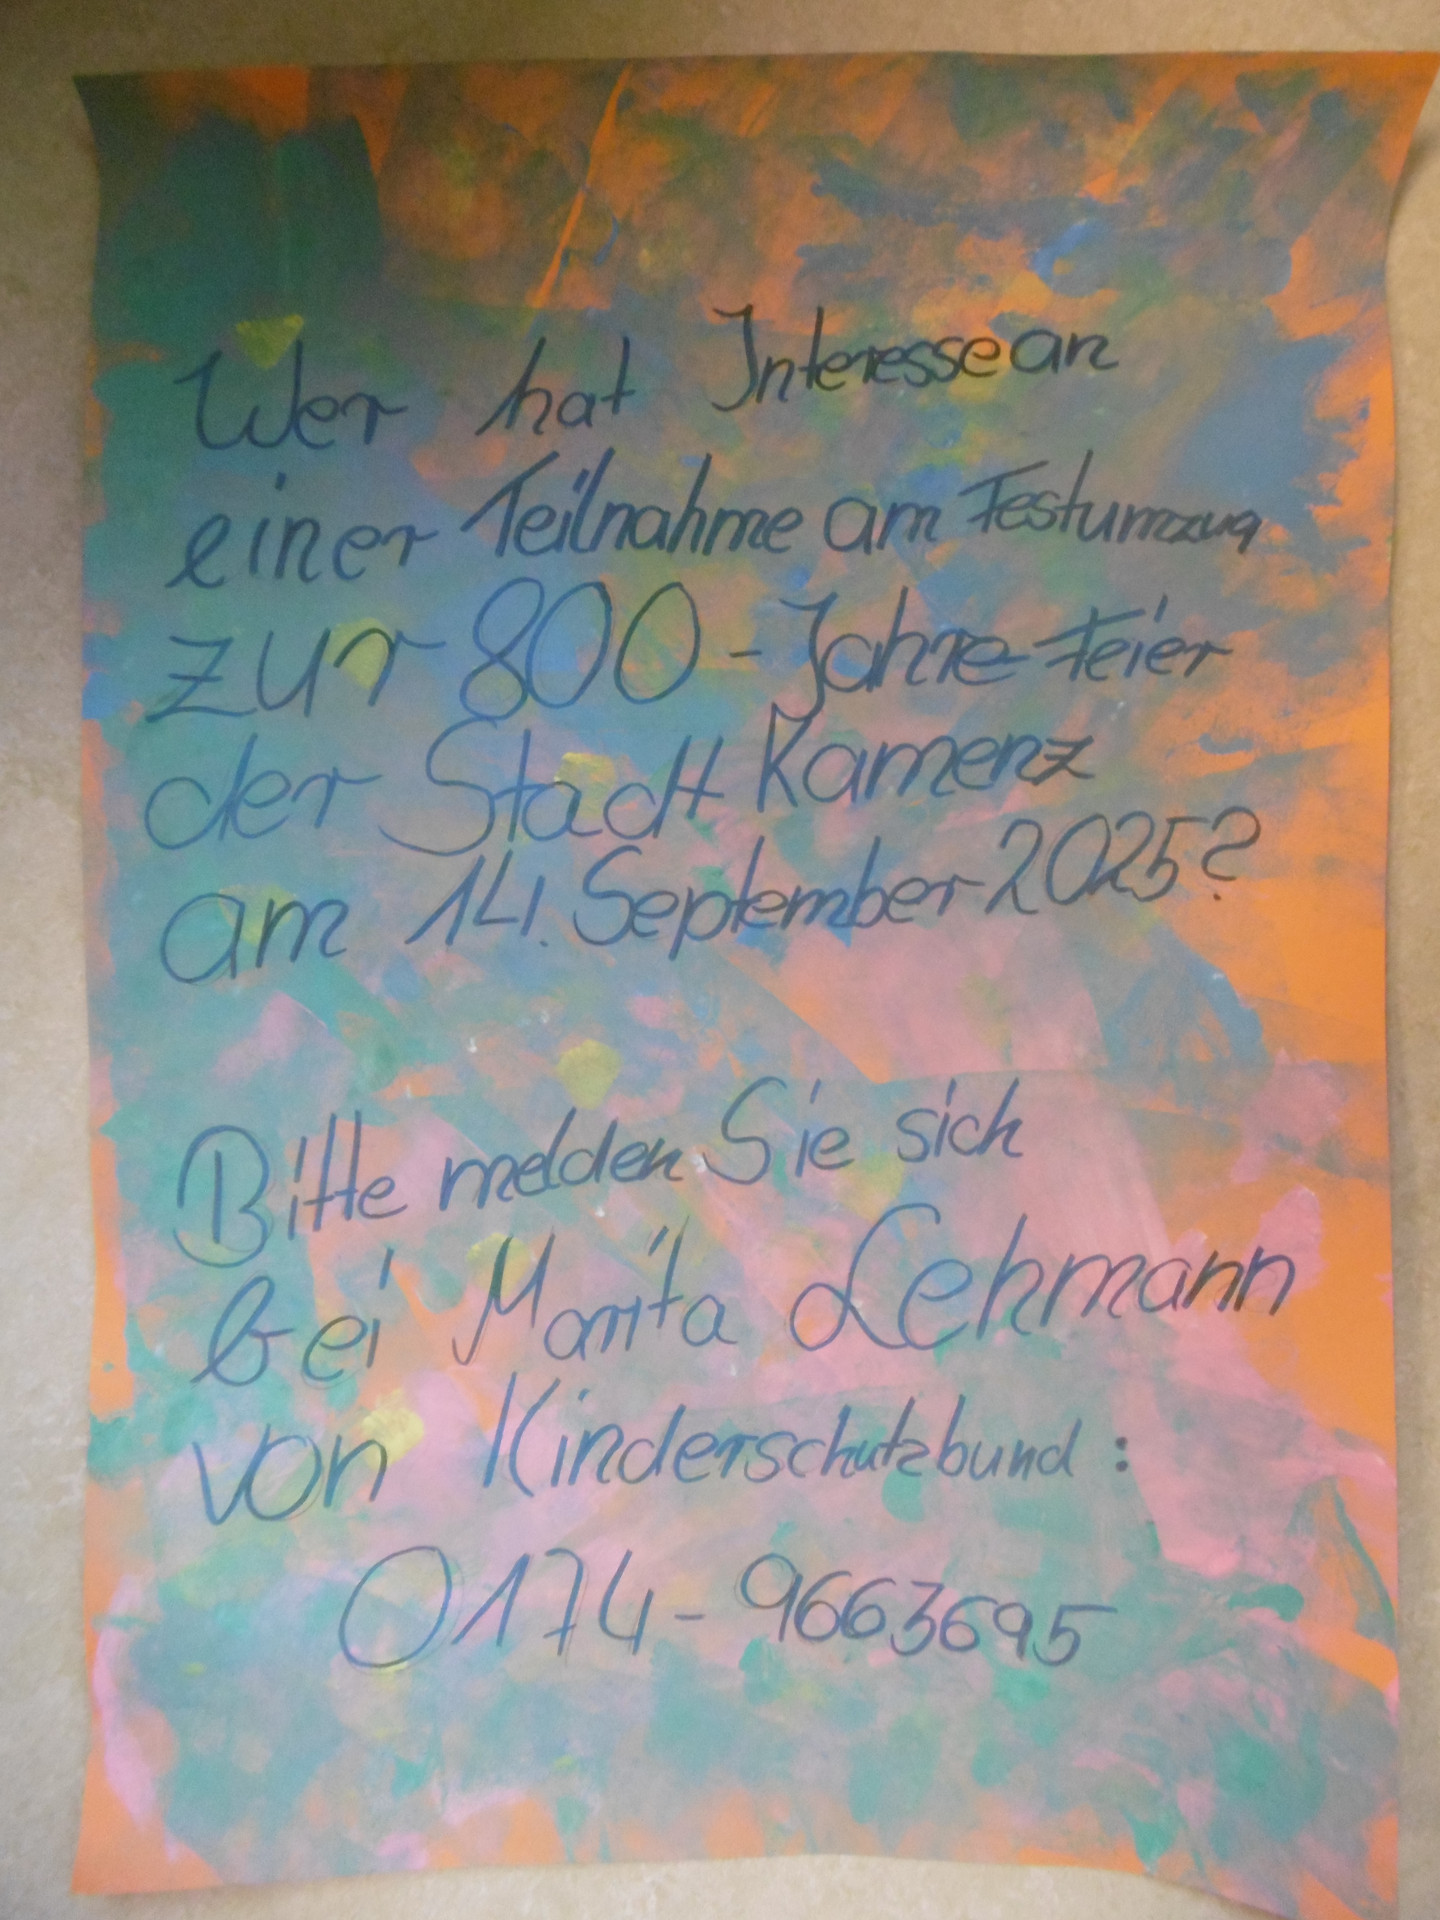 Wer hat Interesse an
einer Teilnahme am Festumzug
zur 800-Jahre-Feier
der Stadt Kamenz
am 14. September 2025?
Bitte melden Sie sich
bei Marita Lehmann
von Kinderschutzbund:
0174-9663695